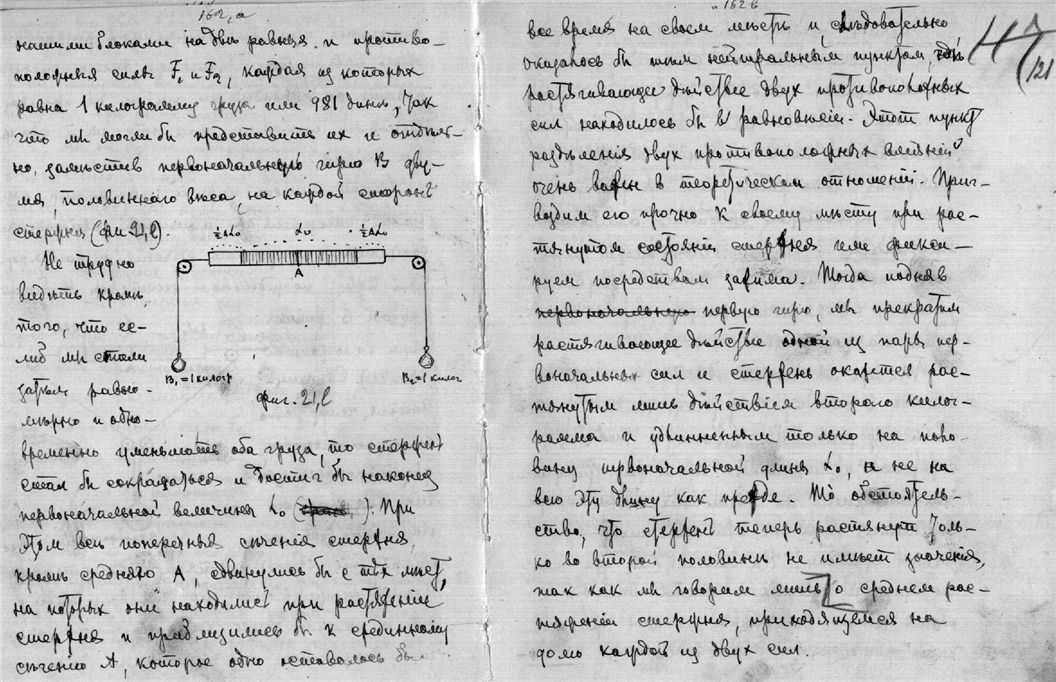 162, а
нашими блоками на двѣ равныя и противо-
положныя силы F₁ и F₂, каждая из которых
равна 1 килограмму груза или 981 динъ, так
что мы могли бы представить их и отдѣль-
но, замѣстив первоначальную гирю В дву-
мя, половиннаго вѣса, на каждой сторонѣ
стержня (фиг 21, б).
½ΔL₀ L₀ ½ΔL₀
А
В₁ = 1 килогр
В₂ = 1 килог
фиг. 21, б
Не трудно
видѣть кромѣ
того, что ес-
либ мы стали
затѣм равно-
мѣрно и одно-
временно уменьшать оба груза, то стержень
стал бы сокращаться и достиг бы наконец
первоначальной величины L₀ ( ). При
этом всѣ поперечныя сѣченія стержня,
кромѣ средняго А, сдвинулись бы с тѣх мѣст,
на которых они находились при растяженіи
стержня и приблизились бы к срединному
сѣченію А, которое одно оставалось бы
162 б
все время на своем мѣстѣ и слѣдовательно
оказалось бы тѣм нейтральным пунктом, гдѣ
растягивающее дѣйствіе двух противоположных
сил находилось бы в равновѣсіи. Этот пункт
раздѣленія двух противоположных вліяній
очень важен в теоретическом отношеніи. Приг-
воздим его прочно к своему мѣсту при рас-
тянутом состояніи стержня или фикси-
руем посредством зажима. Тогда подняв
первоначальную первую гирю, мы прекратим
растягивающее дѣйствіе одной из пары пер-
воначальных сил и стержень окажется рас-
тянутым лишь дѣйствіем второго килог-
рамма и удлиненным только на поло-
вину первоначальной длины L₀, а не на
всю эту длину как прежде. То обстоятель-
ство, что стержень теперь растянут толь-
ко во второй половинѣ не имѣет значенія,
так как мы говорим лишь о среднем рас-
тяженіи стержня, приходящемся на
долю каждой из двух сил.
121